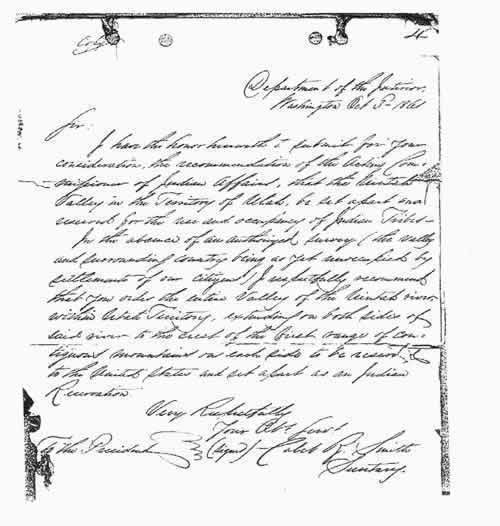 Copy
4
Department of the Interior,
Washington Oct 3d 1861
Sir:
I have the honor herewith to submit for your
consideration, the recommendation of the Acting Com-
missioner of Indian Affairs, that the Uintah
Valley in the Territory of Utah, be set apart and
reserved for the use and occupancy of Indian Tribes—
In the absence of an authorized survey (the valley
and surrounding country being as yet unoccupied by
settlements of our citizens) I respectfully recommend
that you order the entire Valley of the Uintah river
within Utah Territory, extending on both sides of
said river to the crest of the first range of con-
tiguous mountains on each side to be reserved
to the United States and set apart as an Indian
Reservation
Very Respectfully
Your Obt Servt
To the President (signed) Caleb B. Smith
Secretary.